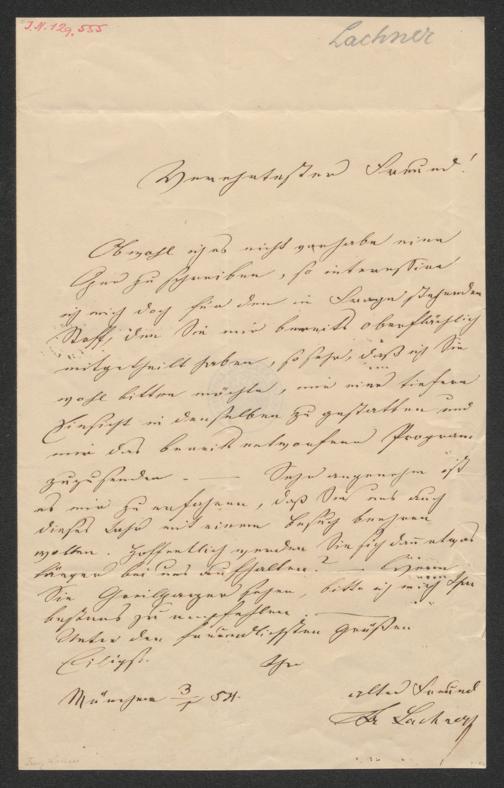 I.N. 129.555
Lachner
Verehrtester Freund!
Obwohl ich es nicht vorhabe eine
Oper zu schreiben, so interessire
ich mich doch für den in Frage stehenden
Stoff, den Sie mir bereits oberflächlich
mitgetheilt haben, so sehr, daß ich Sie
wohl bitten möchte, mir eine tiefere
Einsicht in denselben zu gestatten und
mir das bereits entworfene Programm
zuzusenden. — Sehr angenehm ist
es mir zu erfahren, daß Sie uns auch
dieses Jahr mit einem Besuch beehren
wollen. Hoffentlich werden Sie sich dann etwas
länger bei uns aufhalten? — Wenn
Sie Grillparzer sehen, bitte ich mich ihm
bestens zu empfehlen. —
Unter den freundlichsten Grüßen
Eiligst. Ihr
München 3/ 54. alter Freund
Fr Lachner